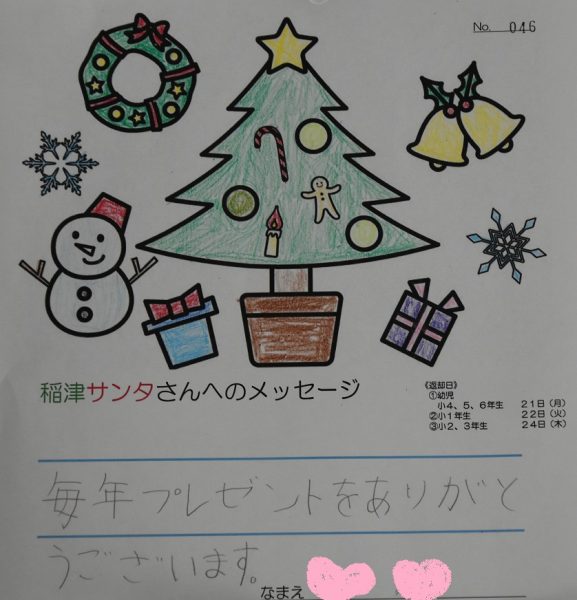 No. 046
稲津サンタさんへのメッセージ
《返却日》
①幼児
小4、5、6年生 21日(月)
②小1年生 22日(火)
③小2、3年生 24日(木)
毎年プレゼントをありがと
うございます。
なまえ